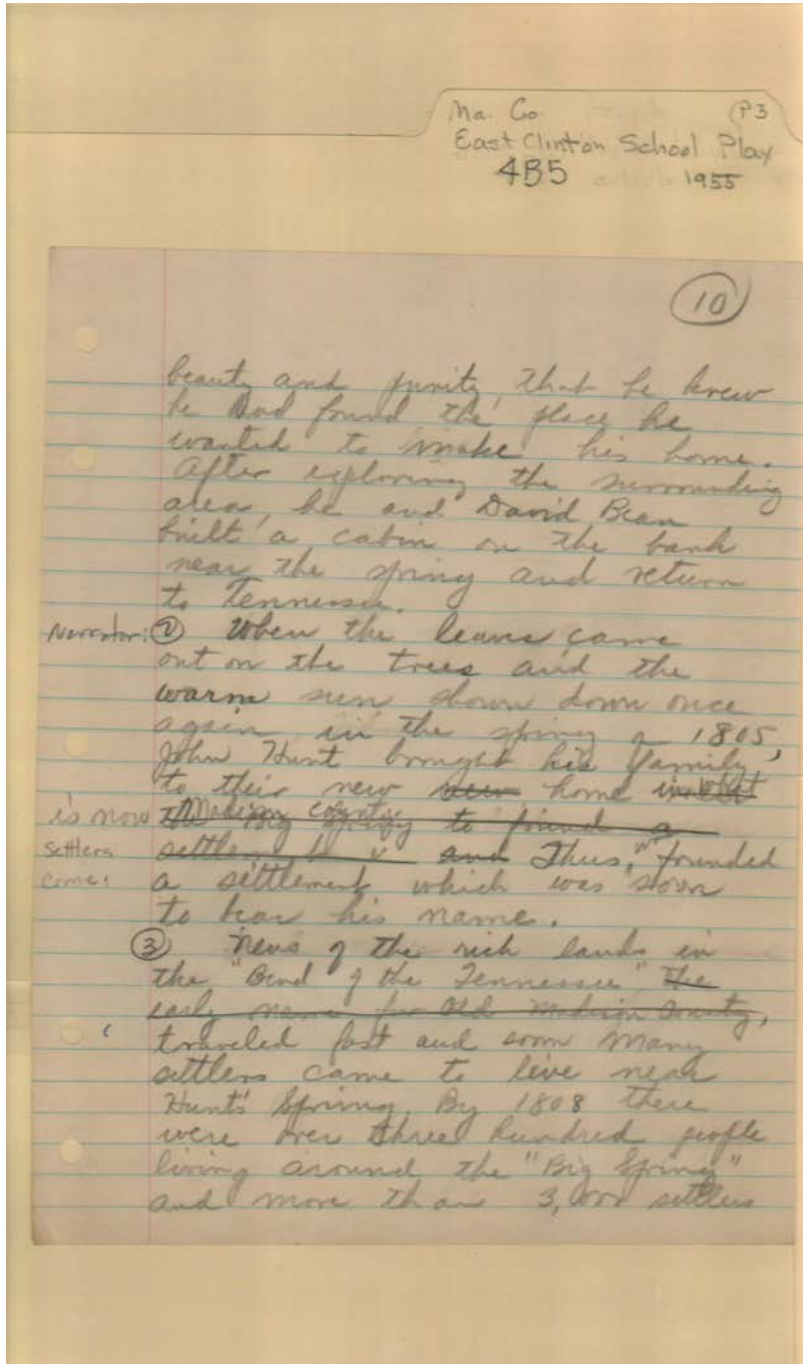 Ma. Co. (P3
East Clinton School Play
4B5 1955
10
beauty and purity, that he knew
he had found the place he
wanted to make his home.
After exploring the surrounding
area, he and David Bean
built a cabin on the bank
near the spring and return
to Tennessee.
Narrator: ② When the leaves came
out on the trees and the
warm sun shown down once
again in the spring of 1805,
John Hunt brought his family
to their new home in what
is now Madison County
the Big Spring to found a
settlement and Thus, founded
Settlers
come: a settlement which was soon
to bear his name.
③ News of the rich lands in
the "Bend of the Tennessee" the
early name for Old Madison County,
traveled fast and soon many
settlers came to live near
Hunt's Spring. By 1808 there
were over three hundred people
living around the "Big Spring"
and more than 3,000 settlers